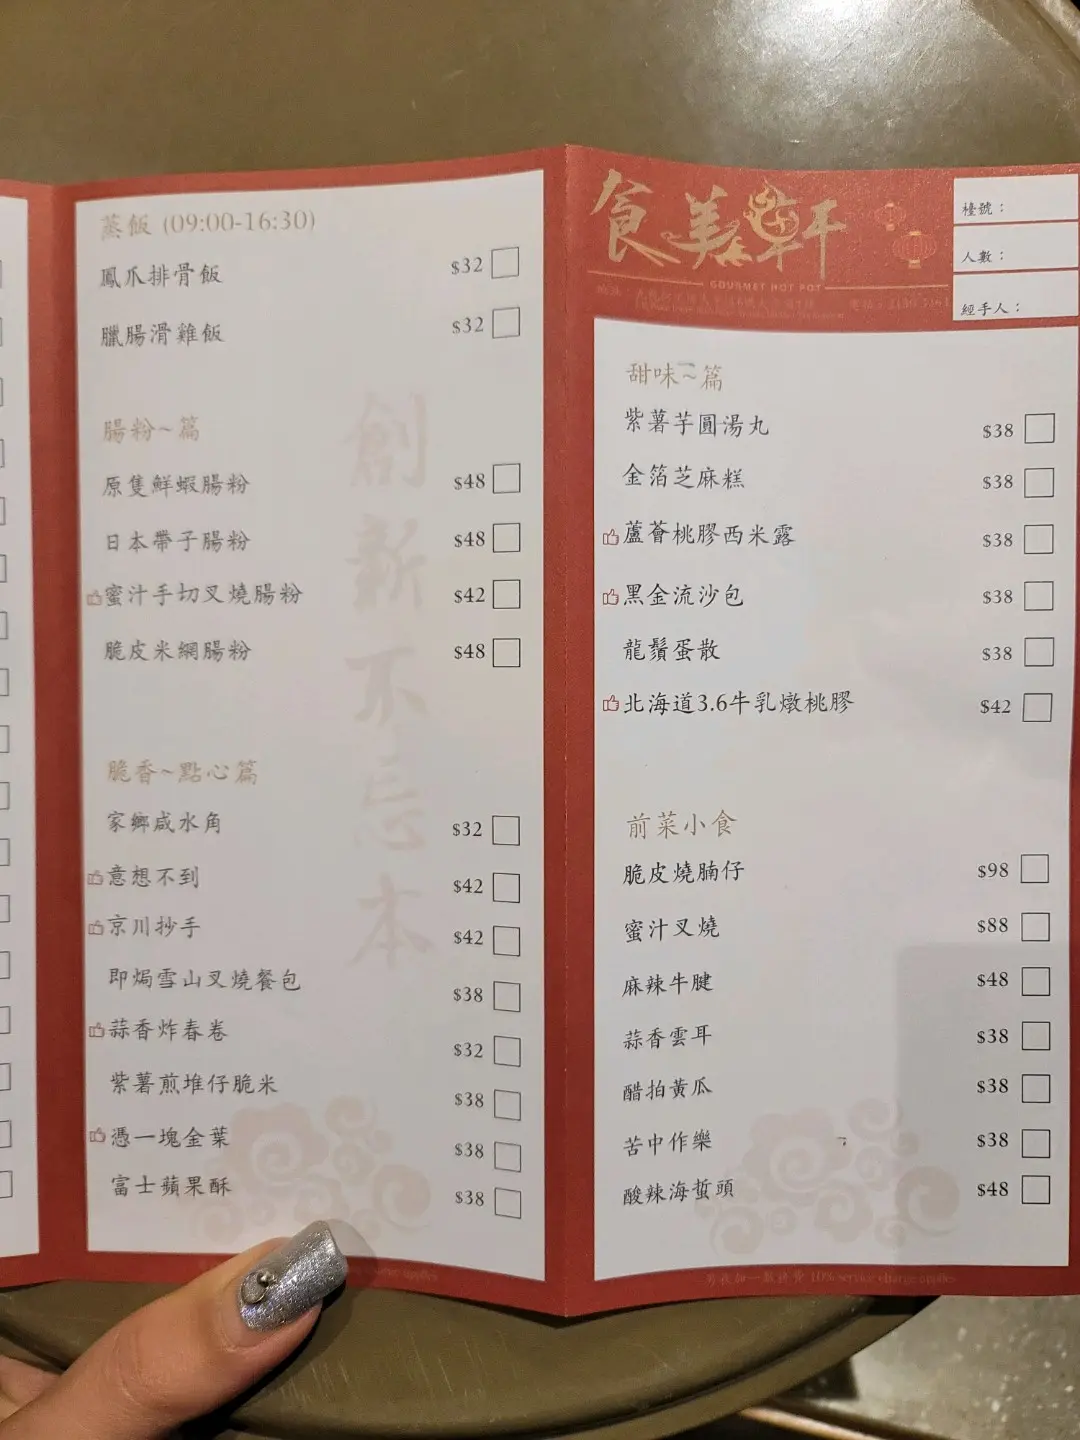 蒸飯 (09:00-16:30)
鳳爪排骨飯 $32
臘腸滑雞飯 $32
腸粉~篇
原隻鮮蝦腸粉 $48
日本帶子腸粉 $48
蜜汁手切叉燒腸粉 $42
脆皮米網腸粉 $48
脆香~點心篇
家鄉咸水角 $32
意想不到 $42
京川抄手 $42
即焗雪山叉燒餐包 $38
蒜香炸春卷 $32
紫薯煎堆仔脆米 $38
憑一塊金葉 $38
富士蘋果酥 $38
創新不忘本
食美軒
GOURMET HOT POT
檯號：
人數：
經手人：
甜味~篇
紫薯芋圓湯丸 $38
金箔芝麻糕 $38
蘆薈桃膠西米露 $38
黑金流沙包 $38
龍鬚蛋散 $38
北海道3.6牛乳燉桃膠 $42
前菜小食
脆皮燒腩仔 $98
蜜汁叉燒 $88
麻辣牛腱 $48
蒜香雲耳 $38
醋拍黃瓜 $38
苦中作樂 $38
酸辣海蜇頭 $48
另收加一服務費 10% service charge applies